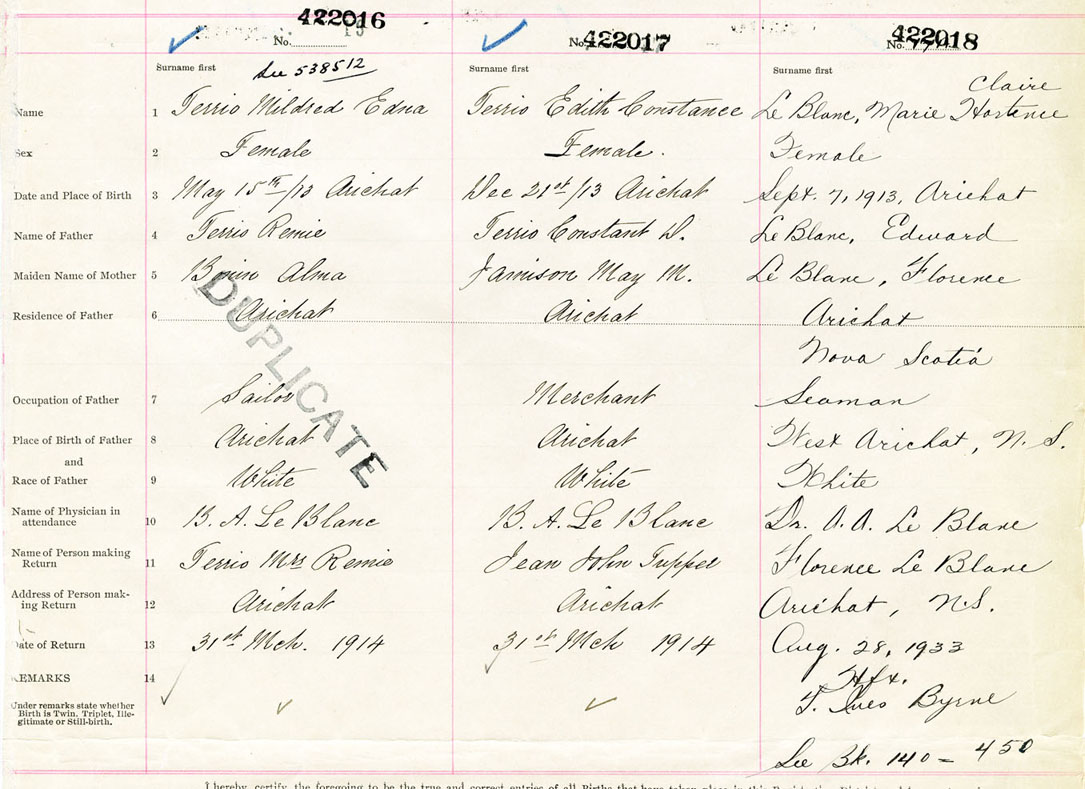 422016 422017 422018
No. No. No.
Surname first Surname first Surname first
See 538512
Claire
Name 1 Terrio Mildred Edna Terrio Edith Constance Le Blanc, Marie Hortence
Sex 2 Female Female. Female
Date and Place of Birth 3 May 15th/13 Arichat Dec 21st/13 Arichat Sept. 7, 1913, Arichat
Name of Father 4 Terrio Remie Terrio Constant D. Le Blanc, Edward
Maiden Name of Mother 5 Bonin Alma Jamison May M. Le Blanc, Florence
Residence of Father 6 Arichat Arichat Arichat
Nova Scotia
DUPLICATE
Occupation of Father 7 Sailor Merchant Seaman
Place of Birth of Father 8 Arichat Arichat West Arichat, N. S.
and
Race of Father 9 White White White
Name of Physician in
attendance 10 B. A. Le Blanc B. A. Le Blanc Dr. A. A. Le Blanc
Name of Person making
Return 11 Terrio Mrs Remie Jean John Tupper Florence Le Blanc
Address of Person mak-
ing Return 12 Arichat Arichat Arichat, N.S.
Date of Return 13 31st Mch. 1914 31st Mch 1914 Aug. 28, 1933
REMARKS 14 Hfx.
Under remarks state whether
Birth is Twin, Triplet, Ille-
gitimate or Still-birth.
Byrne
See Bk. 140 = 450
I hereby, certify, the foregoing to be the true and correct entries of all Births that have taken place in this Registration District